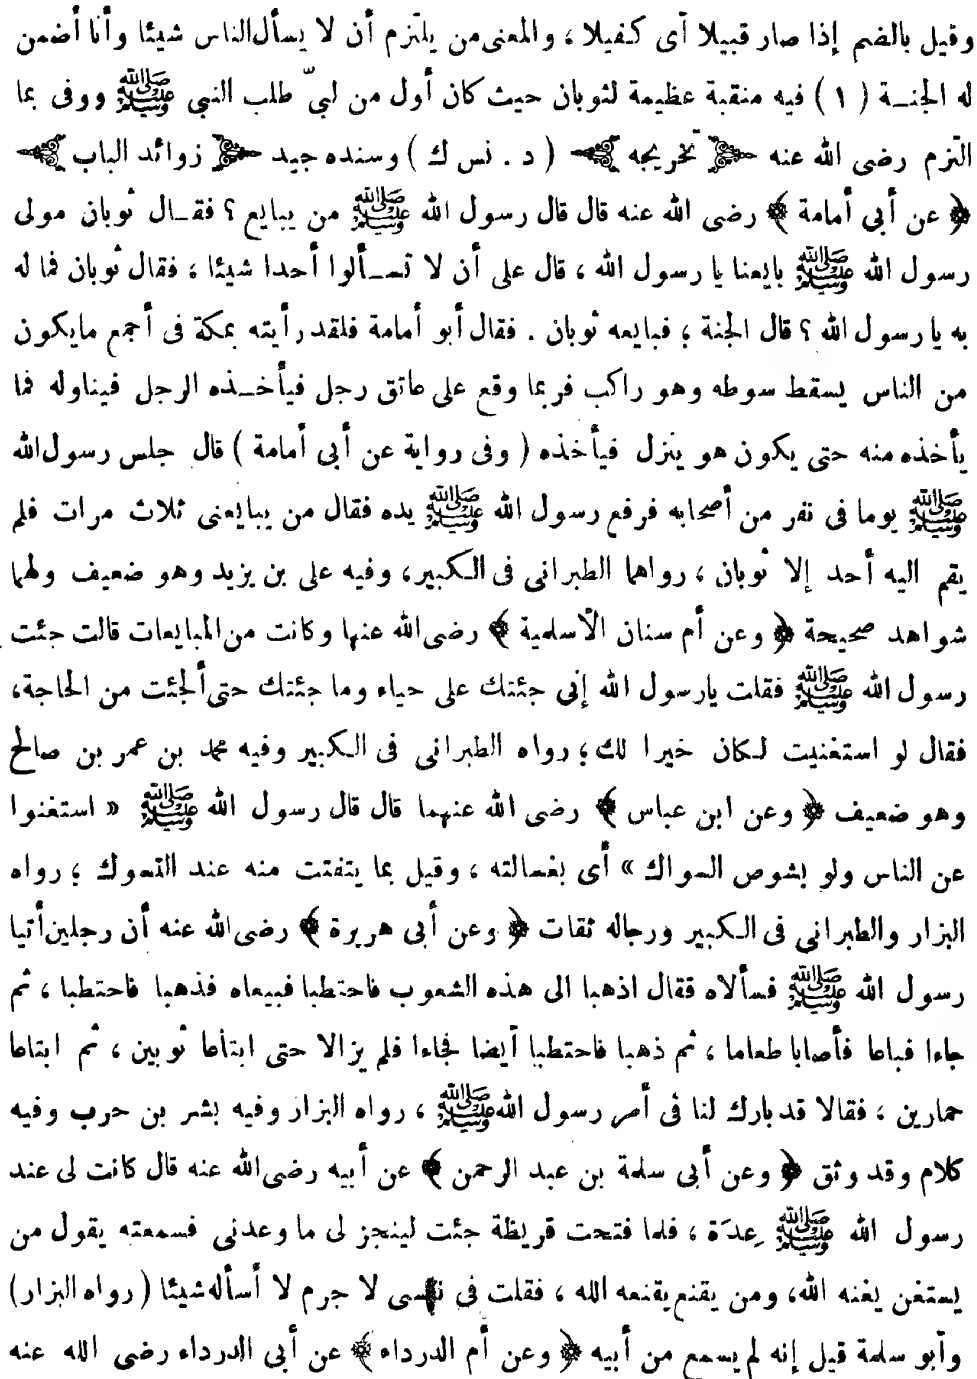 وقيل بالضم إذا صار قبيلا أى كفيلا ، والمعنى من يلتزم أن لا يسأل الناس شيئا وأنا أضمن
له الجنــة ( ١ ) فيه منقبة عظيمة لثوبان حيث كان أول من لبىّ طلب النبي ﷺ ووفى بما
التزم رضى الله عنه تخريجه ( د . نس ك ) وسنده جيد زوائد الباب
﴿ عن أبى أمامة ﴾ رضى الله عنه قال قال رسول الله ﷺ من يبايع ؟ فقـال ثوبان مولى
رسول الله ﷺ بايعنا يا رسول الله ، قال على أن لا تســألوا أحدا شيئا ، فقال ثوبان فما له
به يا رسول الله ؟ قال الجنة ؛ فبايعه ثوبان . فقال أبو أمامة فلقد رأيته بمكة فى أجمع مايكون
من الناس يسقط سوطه وهو راكب فربما وقع على عاتق رجل فيأخــذه الرجل فيناوله فما
يأخذه منه حتى يكون هو ينزل فيأخذه ( وفى رواية عن أبى أمامة ) قال جلس رسول الله
ﷺ يوما فى نفر من أصحابه فرفع رسول الله ﷺ يده فقال من يبايعنى ثلاث مرات فلم
يقم اليه أحد إلا ثوبان ، رواهما الطبرانى فى الـكبير، وفيه على بن يزيد وهو ضعيف ولهما
شواهد صحيحة ﴿ وعن أم سنان الأسلمية ﴾ رضى الله عنها وكانت من المبايعات قالت جئت
رسول الله ﷺ فقلت يارسول الله إنى جئتك على حياء وما جئتك حتى ألجئت من الحاجة،
فقال لو استغنيت لـكان خيرا لك؛ رواه الطبرانى فى الـكبير وفيه محمد بن عمر بن صالح
وهو ضعيف ﴿ وعن ابن عباس ﴾ رضى الله عنهما قال قال رسول الله ﷺ « استغنوا
عن الناس ولو بشوص السواك » أى بغسالته ، وقيل بما يتفتت منه عند التسوك ؛ رواه
البزار والطبرانى فى الـكبير ورجاله ثقات ﴿ وعن أبى هريرة ﴾ رضى الله عنه أن رجلين أتيا
رسول الله ﷺ فسألاه فقال اذهبا الى هذه الشعوب فاحتطبا فبيعاه فذهبا فاحتطبا ، ثم
جاءا فباعا فأصابا طعاما ، ثم ذهبا فاحتطبا أيضا فجاءا فلم يزالا حتى ابتاعا ثوبين ، ثم ابتاعا
حمارين ، فقالا قد بارك لنا فى أمر رسول الله ﷺ ، رواه البزار وفيه بشر بن حرب وفيه
كلام وقد وثق ﴿ وعن أبى سلمة بن عبد الرحمن ﴾ عن أبيه رضى الله عنه قال كانت لى عند
رسول الله ﷺ عِدَة ، فلما فتحت قريظة جئت لينجز لى ما وعدنى فسمعته يقول من
يستغن يغنه الله، ومن يقنع يقنعه الله ، فقلت فى نفسى لا جرم لا أسأله شيئا ( رواه البزار)
وأبو سلمة قيل إنه لم يسمع من أبيه ﴿ وعن أم الدرداء ﴾ عن أبى الدرداء رضى الله عنه